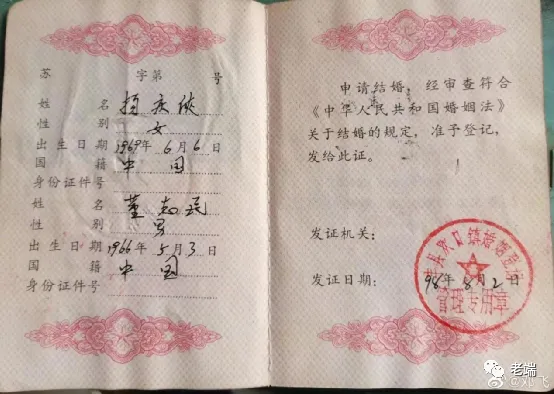 苏 字第 号
姓 名 杨庆侠
性 别 女
出生日期 1969年6月6日
国 籍 中国
身份证件号
姓 名 董志民
性 别 男
出生日期 1966年5月3日
国 籍 中国
身份证件号
申请结婚，经审查符合
《中华人民共和国婚姻法》
关于结婚的规定，准予登记，
发给此证。
发证机关：
发证日期： 98年8月2日
镇婚姻登记
管理专用章
老端